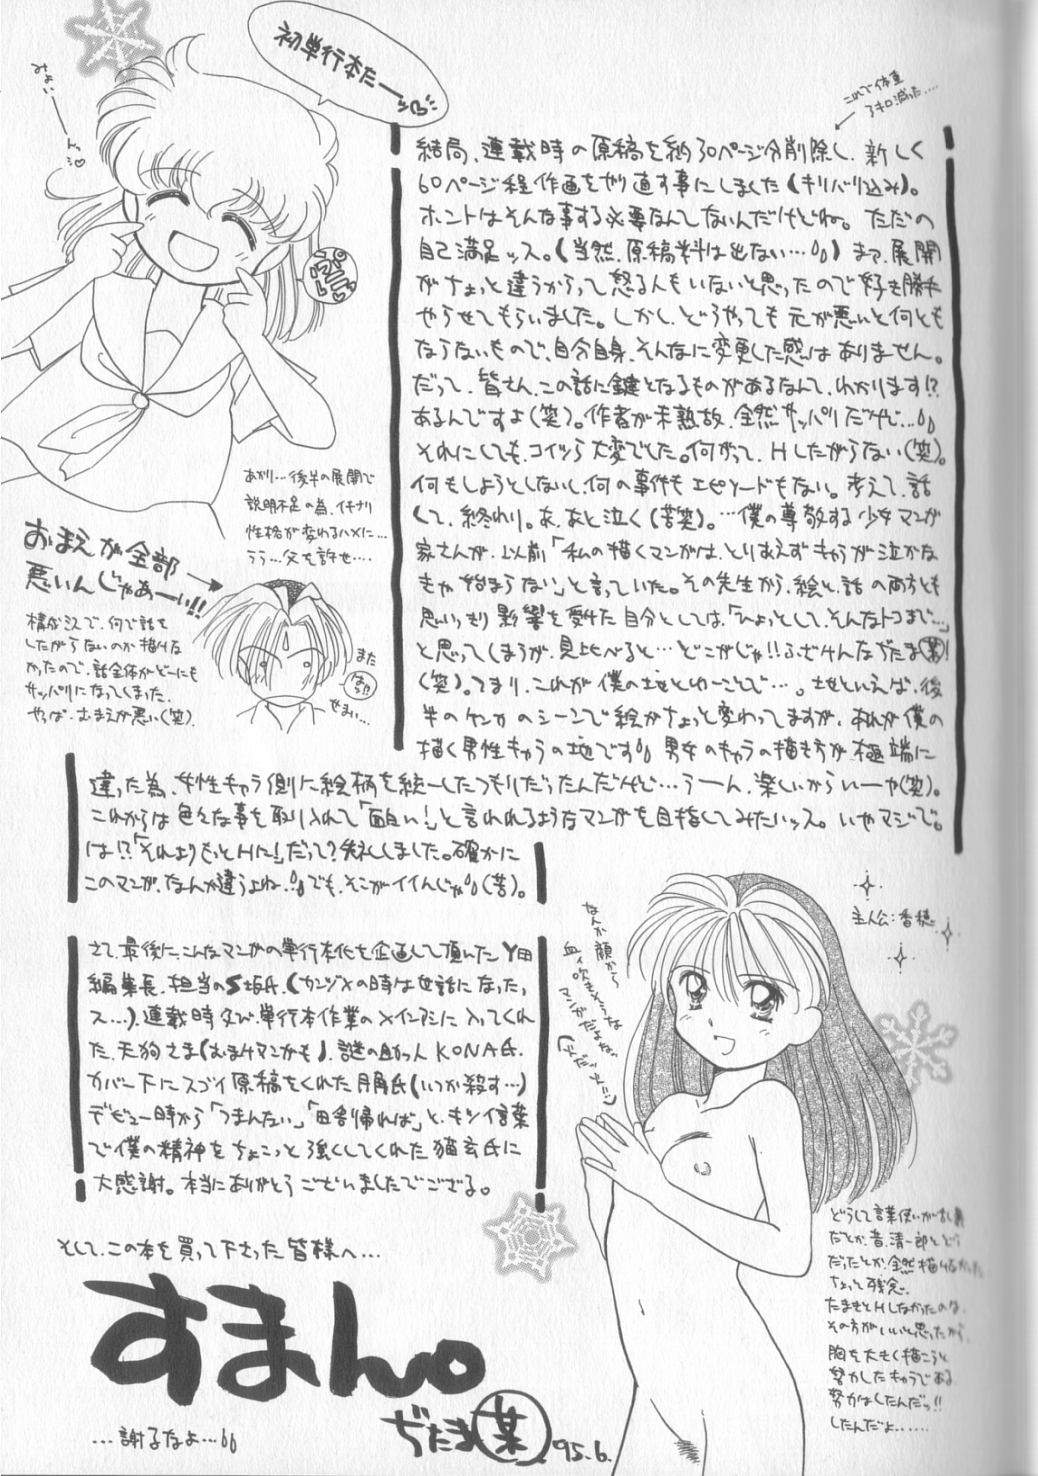 初単行本だーッ
みょいーーんっ
これで体重
3キロ減った……
結局、連載時の原稿を約30ページ分削除し、新しく
60ページ程作画をやり直す事にしました(キリバリ込み)。
ホントはそんな事する必要なんてないんだけどね。ただの
自己満足ッス。(当然、原稿料は出ない…)まァ、展開
がちょっと違うからって怒る人もいないと思ったので好き勝手
やらせてもらいました。しかし、どうやっても元が悪いと何とも
ならないもので、自分自身、そんなに変更した感はありません。
だって、皆さん、この話に鍵となるものがあるなんて、わかります!?
あるんですよ(笑)。作者が未熟故、全然サッパリだけど…
それにしても、コイツら大変でした。何がって、Hしたがらない(笑)。
何もしようとしないし、何の事件もエピソードもない。考えて、話
して、終わり。あ、あと泣く(苦笑)。…僕の尊敬する少女マンガ
家さんが、以前「私の描くマンガは、とりあえずキャラが泣かな
きゃ始まらない」と言っていた。その先生から、絵と、話の両方とも
思いっきり影響を受けた自分としては、「ひょっとして、そんなトコまで…」
と思ってしまうが、見比べると…どこがじゃ!!ふざけんなぢたま㊅!
(笑)。つまり、これが僕の地とゆーことで…。地といえば、後
半のケンカのシーンで絵がちょっと変わってますが、あれが僕の
描く男性キャラの地です 男女のキャラの描き方が極端に
違った為、女性キャラ側に絵柄を統一したつもりだったんだけど…うーん、楽しいからいーや(笑)。
これからは色々な事を取り入れて「面白い!」と言われるようなマンガを目指してみたいッス。いやマジで。
は!?「それよりもっとHに!」だって?失礼しました。確かに
このマンガ、なんか違うよね、でも、そこがイイんじゃ(苦)。
あかり…後半の展開で
説明不足の為、イキナリ
性格が変わるハメに…
うぅ…父を許せ……
おまえが全部
悪いんじゃあーい!!
構成ミスで、何で話を
したがらないのか描けな
かったので、話全体がどーにも
サッパリになってしまった。
やっぱ、おまえが悪い(笑)。
また
せまい…
さて、最後に、こんなマンガの単行本化を企画して頂いたY田
編集長、担当のS坂氏、(カンヅメの時は世話になったっ
ス…)、連載時及び、単行本作業のメインアシに入ってくれ
た、天狗さま(おまけマンガも)、謎の助っ人KONA氏、
カバー下にスゴイ原稿をくれた月角氏(いつか殺す…)
デビュー時から「つまんない」「田舎帰れば」と、キツイ言葉
で僕の精神をちょこっと強くしてくれた猫玄氏に
大感謝。本当にありがとうございましたでござる。
主人公:香穂
なんか顔から
血ィ吹きそうな
マンガだよねぇ。
どうして言葉使いが
だとか、昔、清一郎と
だったとか、全然描けなかった
ちょっと残念。
たまきとHしなかったのは、
その方がいいと思ったから
胸を大きく描こうと
努力したキャラである
努力はしたんだっ!!
したんだよ……
そして、この本を買って下さった皆様へ…
すまん。
…謝るなよ…
ぢたま
'95.6.